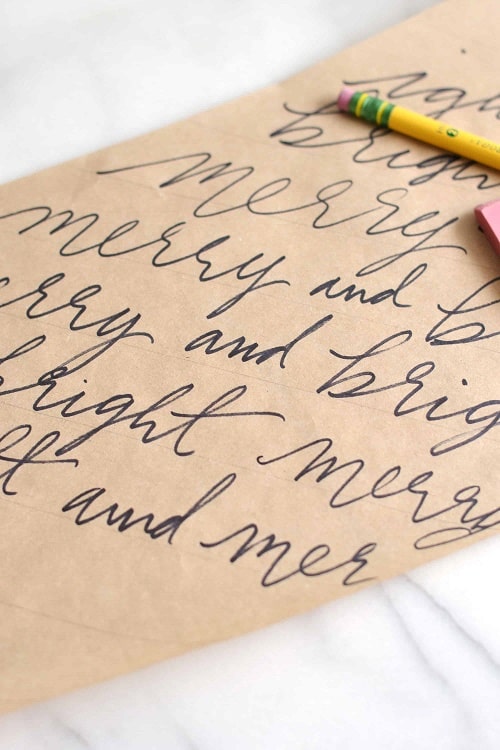 brigh
merry
merry and b
erry and brig
bright merry
t and mer